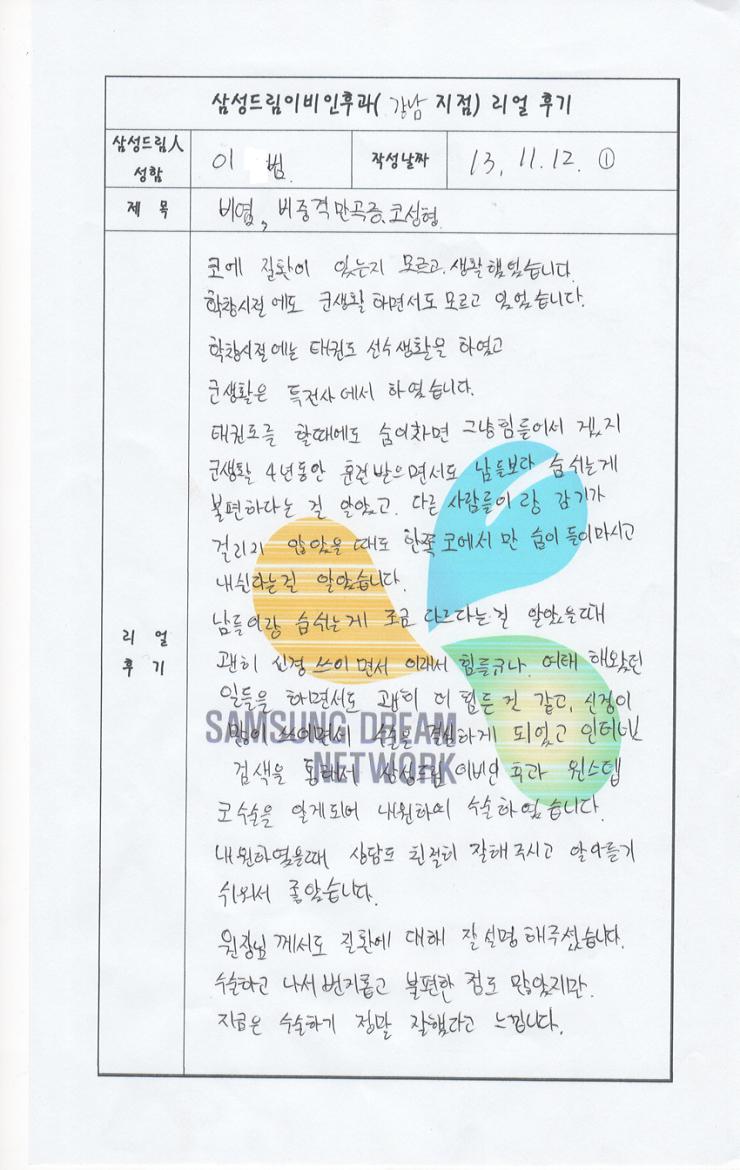 삼성드림이비인후과( 강남 지점) 리얼 후기
삼성드림人 성함
이 범
작성날짜
13. 11. 12. ①
제 목
비염, 비중격만곡증, 코성형
리 얼 후 기
코에 질환이 있는지 모르고. 생활했었습니다.
학창시절에도 군생활 하면서도 모르고 있었습니다.
학창시절에는 태권도 선수생활을 하였고
군생활은 특전사에서 하였습니다.
태권도를 할때에도 숨이차면 그냥힘들어서 겠지
군생활 4년동안 훈련받으면서도 남들보다 숨쉬는게
불편하다는 걸 알았고. 다른 사람들이랑 감기가
걸리지 않았을 때도 한쪽 코에서만 숨이 들이마시고
내쉰다는걸 알았습니다.
남들이랑 숨쉬는게 조금 다르다는걸 알았을때
괜히 신경 쓰이면서 이래서 힘들구나. 여태 해왔던
일들을 하면서도 괜히 더 힘든 것 같고, 신경이
많이 쓰이면서 수술을 결심하게 되었고 인터넷
검색을 통해서 삼성드림 이비인후과 원스텝
코수술을 알게되어 내원하여 수술하였습니다.
내원하였을때 상담도 친절히 잘해주시고 알아듣기
쉬워서 좋았습니다.
원장님께서도 질환에 대해 잘 설명해주셨습니다.
수술하고 나서 번거롭고 불편한 점도 많았지만.
지금은 수술하기 정말 잘했다고 느낍니다.
SAMSUNG DREAM
NETWORK